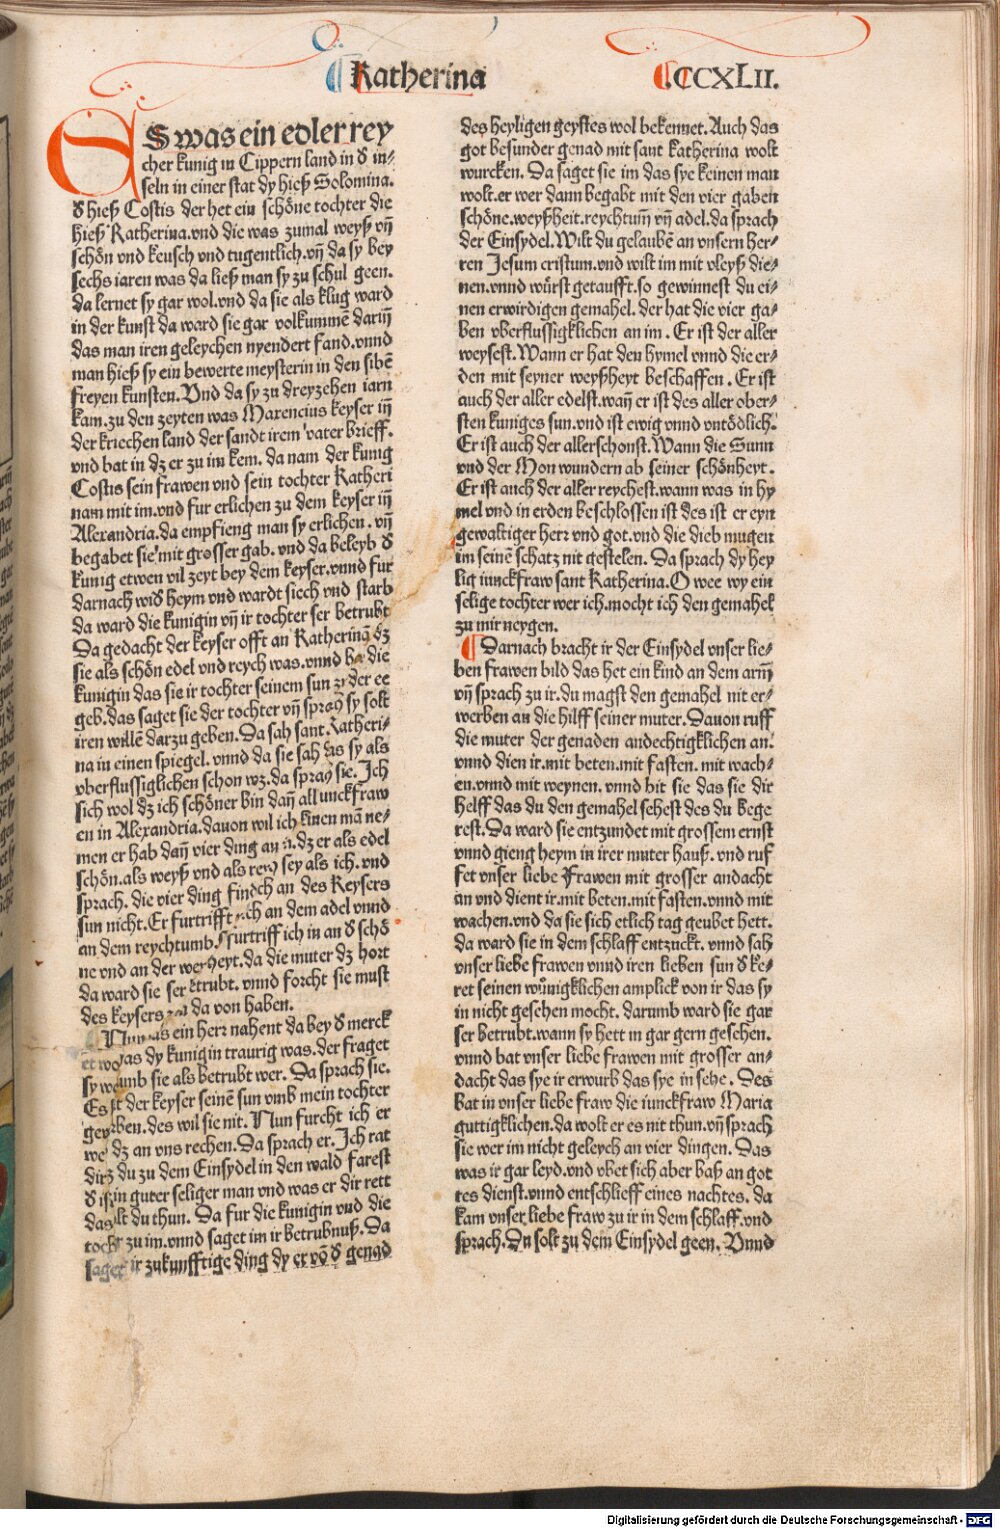 Katherina
.CCXLII.
ES was ein edler rey
cher kunig in Cippern land in d̕ in⸗
seln in einer stat dy hieß Solomina.
d̕ hieß Costis der het ein schöne tochter die
hieß Katherina.vnd die was zumal weyß vn̄
schön vnd keusch vnd tugentlich.vn̄ da sy bey
sechs iaren was da ließ man sy zu schul geen.
da lernet sy gar wol.vnd da sie als klug ward
in der kunst da ward sie gar volkummē dariñ
das man iren geleychen nyendert fand.vnnd
man hieß sy ein bewerte meysterin in den sibē
freyen kunsten.Vnd da sy zu dreyzehen iarn
kam.zu den zeyten was Maxencius keyser iñ
der kriechen land der sandt irem vater brieff.
vnd bat in dz er zu im kem. da nam der kunig
Costis sein frawen vnd sein tochter Katheri
nam mit im.vnd fur erlichen zu dem keyser iñ
Alexandria.da empfieng man sy erlichen. vn̄
begabet sie mit grosser gab. vnd da beleyb d̕
kunig etwen vil zeyt bey dem keyser.vnnd fur
darnach wid̕ heym vnd wardt siech vnd starb
da ward die kunigin vn̄ ir tochter ser betrubt
Da gedacht der keyser offt an Katherinā dz
sie als schön edel vnd reych was.vnnd die
kunigin das sie ir tochter seinem sun zu der ee
geb.das saget sie der tochter vn̄ sprach sy solt
iren willē darzu geben.Da sah sant.Katheri⸗
na in einen spiegel. vnnd da sie sah das sy als
vberflussiglichen schon wz.da sprach sie. Ich
sich wol dz ich schöner bin dañ all iunckfraw
en in Alexandria.dauon wil ich kinen mā ne⸗
men er hab dañ vier ding an dz er als edel
schön.als weyß vnd als reych sey als ich. vnd
sprach. die vier ding find ich an des Keysers
sun nicht.Er furtrifft mich an dem adel vnnd
an dem reychtumb.So furtriff ich in an d̕ schö
ne vnd an der weyßheyt.da die muter dz hort
da ward sie ser betrubt. vnnd forcht sie must
des keysers da von haben.
Nun was ein herr nahent da bey d̕ merck
et was dy kunigin traurig was.der fraget
sy warumb sie als betrubt wer. Da sprach sie.
Es hat der keyser seinē sun vmb mein tochter
geworben.des wil sie nit. Nun furcht ich er
we dz an vns rechen.Da sprach er.Ich rat
dir dz du zu dem Einsydel in den wald farest
d̕ ist ein guter seliger man vnd was er dir rett
das solt du thun. Da fur die kunigin vnd die
tochter zu im.vnnd saget im ir betrubnuß.Da
saget ir zukunfftige ding dy er vō d̕ genad
des heyligen geystes wol bekennet.Auch das
got besunder genad mit sant katherina wolt
wurcken. Da saget sie im das sye keinen man
wolt.er wer dann begabt mit den vier gaben
schöne.weyßheit.reychtum̄ vn̄ adel.da sprach
der Einsydel.Wilt du gelaubē an vnsern her⸗
ren Jesum cristum.vnd wilt im mit vleyß die⸗
nen.vnnd würst getaufft.so gewinnest du ei⸗
nen erwirdigen gemahel. der hat die vier ga⸗
ben vberflussigklichen an im . Er ist der aller
weysest.Wann er hat den hymel vnnd die er⸗
den mit seyner weyßheyt beschaffen . Er ist
auch der aller edelst.wañ er ist des aller ober⸗
sten kuniges sun.vnd ist ewig vnnd vntödlich.
Er ist auch der allerschonst.Wann die Sunn
vnd der Mon wundern ab seiner schönheyt.
Er ist auch der aller reychest.wann was in hy
mel vnd in erden beschlossen ist des ist er eyn
gewaltiger herr vnd got.vnd die dieb mugen
im seinē schatz nit gestelen. Da sprach dy hey
lig iunckfraw sant Katherina.O wee wy ein
selige tochter wer ich.mocht ich den gemahel
zu mir neygen.
Darnach bracht ir der Einsydel vnser lie⸗
ben frawen bild das het ein kind an dem arm̄
vn̄ sprach zu ir.du magst den gemahel nit er⸗
werben an die hilff seiner muter.Dauon ruff
die muter der genaden andechtigklichen an.
vnnd dien ir.mit beten.mit fasten. mit wach⸗
en.vnnd mit weynen. vnnd bit sie das sie dir
helff das du den gemahel sehest des du bege
rest.Da ward sie entzundet mit grossem ernst
vnnd gieng heym in irer muter hauß. vnd ruf
fet vnser liebe Frawen mit grosser andacht
an vnd dient ir.mit beten.mit fasten.vnnd mit
wachen.vnd da sie sich etlich tag geubet hett.
da ward sie in dem schlaff entzuckt. vnnd sah
vnser liebe frawen vnnd iren lieben sun d̕ ke⸗
ret seinen wūnigklichen amplick von ir das sy
in nicht gesehen mocht. darumb ward sie gar
ser betrubt.wann sy hett in gar gern gesehen.
vnnd bat vnser liebe frawen mit grosser an⸗
dacht das sye ir erwurb das sye in sehe . Des
bat in vnser liebe fraw die iunckfraw Maria
guttigklichen.da wolt er es nit thun.vn̄ sprach
sie wer im nicht geleych an vier dingen. Das
was ir gar leyd.vnd vbet sich aber baß an got
tes dienst.vnnd entschlieff eines nachtes. da
kam vnser liebe fraw zu ir in dem schlaff.vnd
sprach.Du solt zu dem Einsydel geen. Vnnd
Digitalisierung gefördert durch die Deutsche Forschungsgemeinschaft - DFG